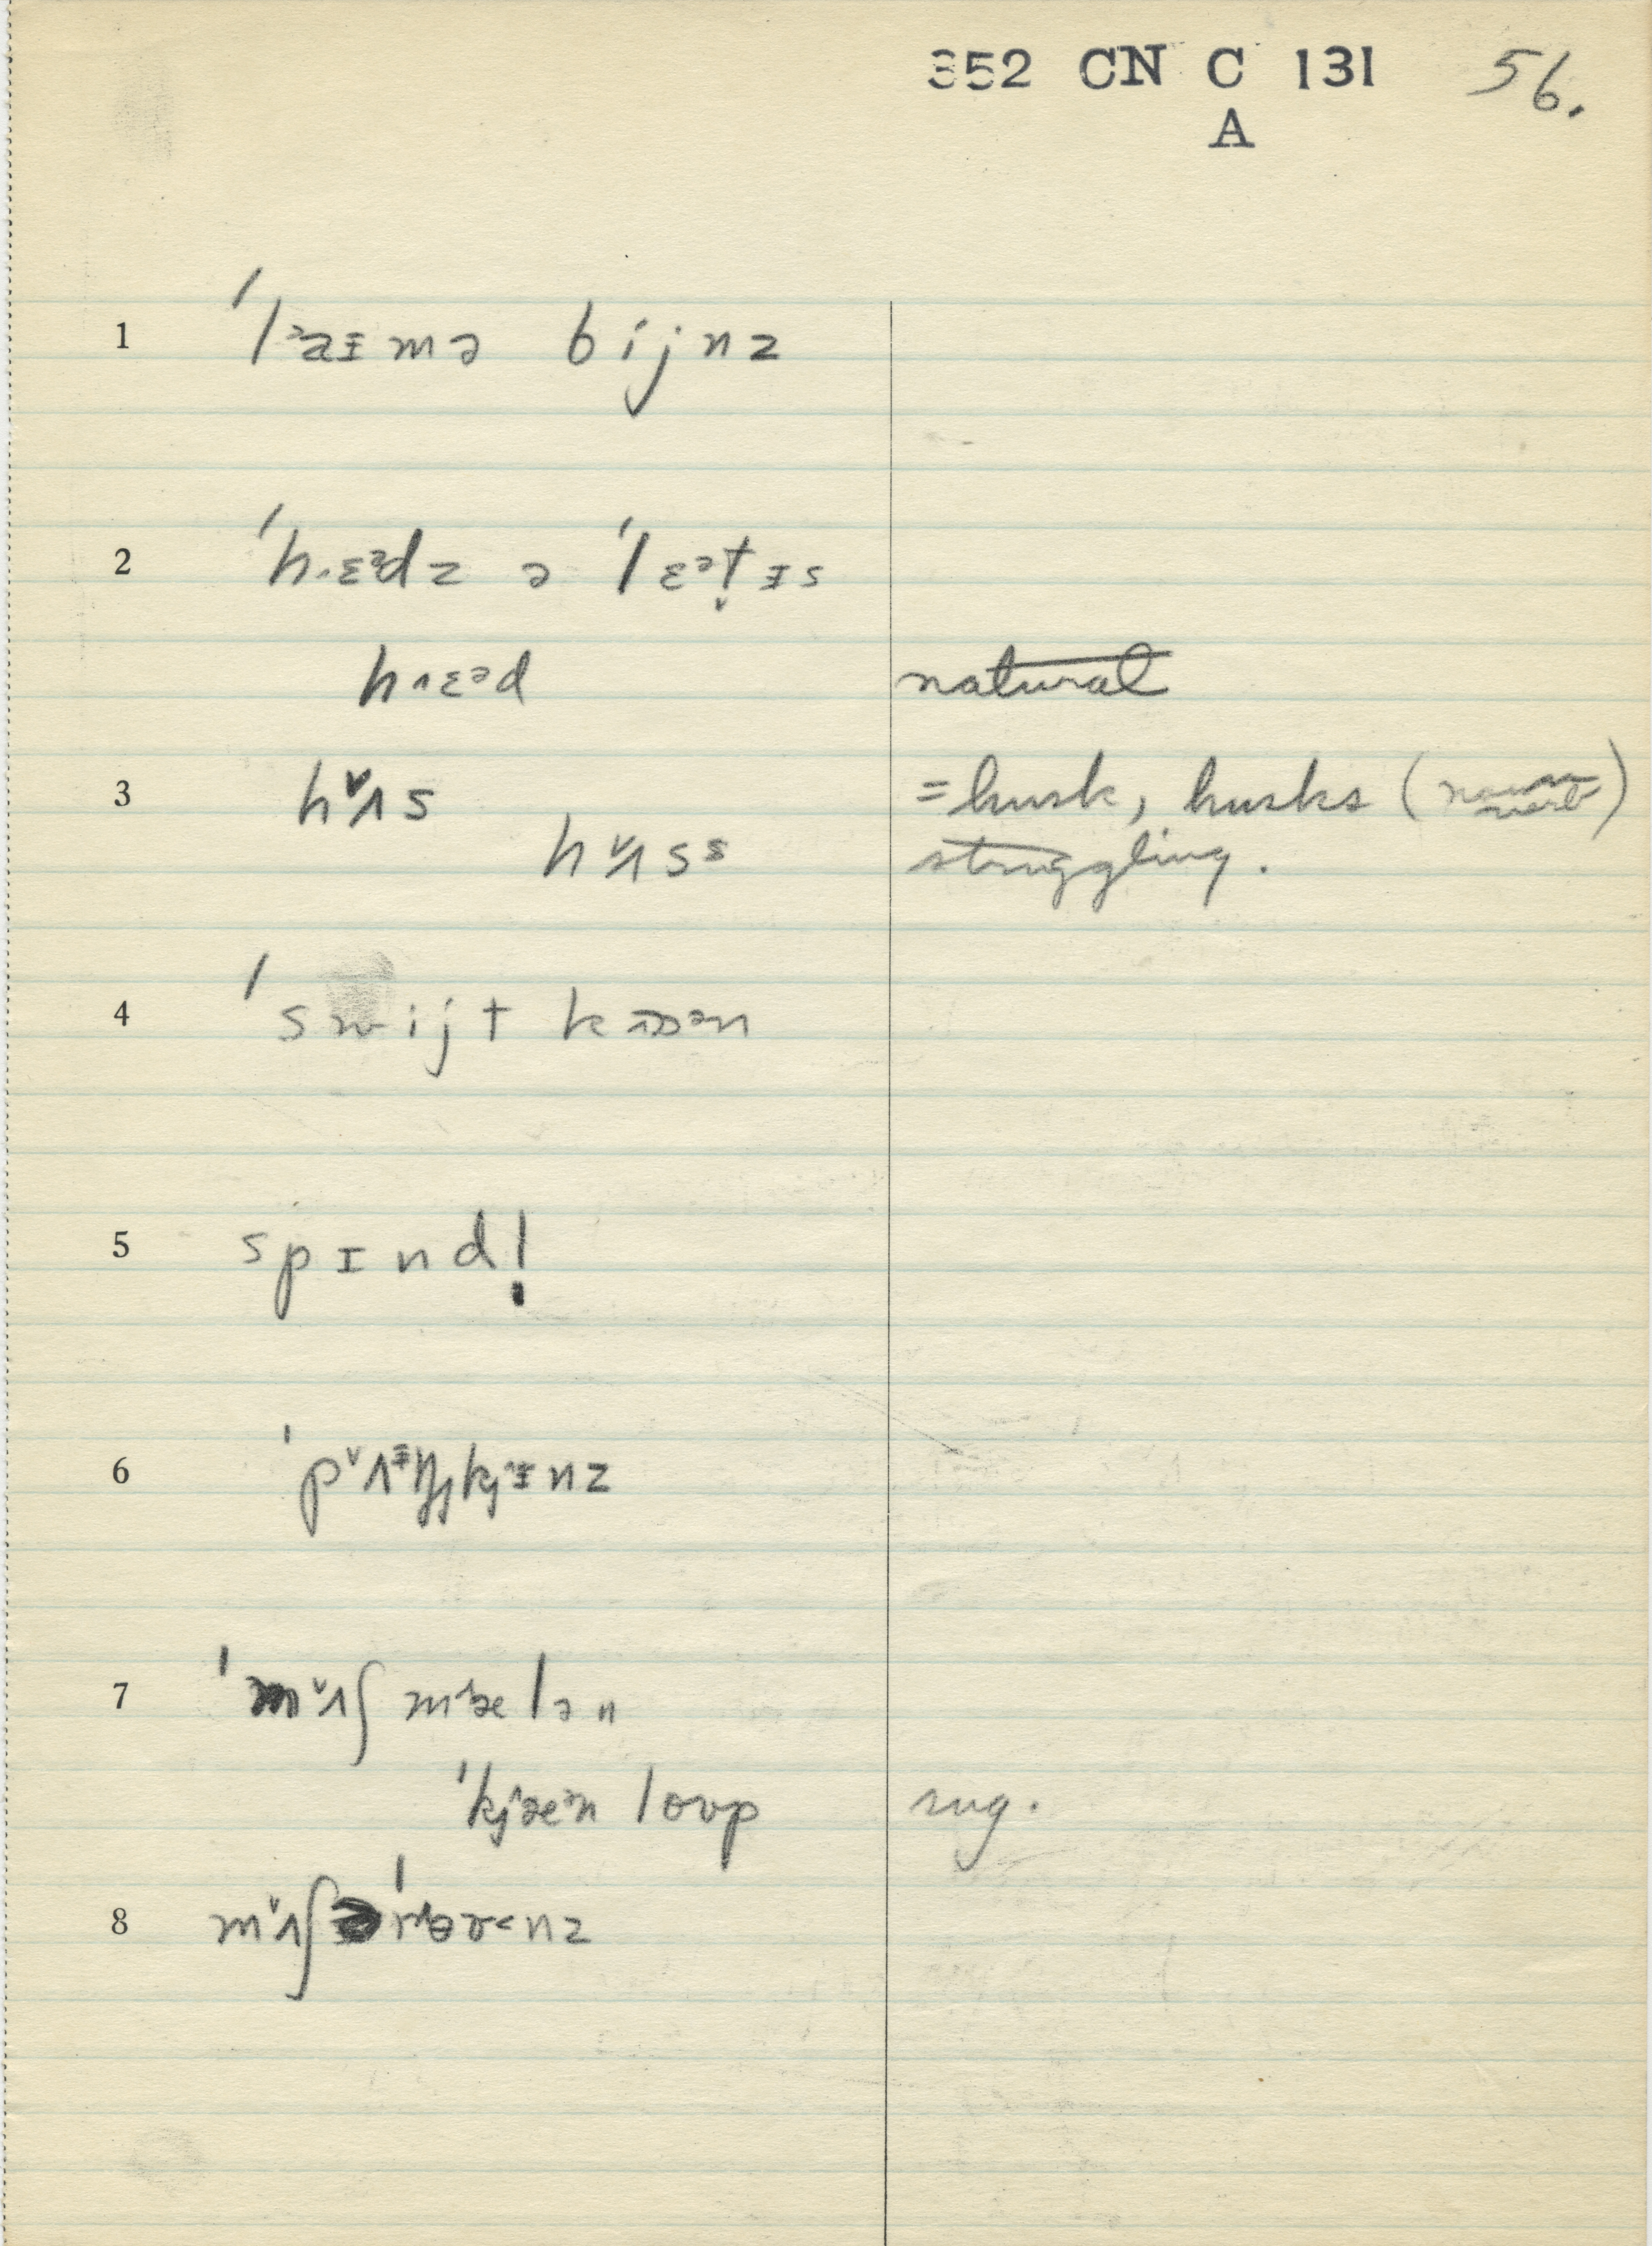 352 CN C 131 56.
A
1 ˈlᵊaᵻmə bijnz
2 ˈh˄ɛᵊdz ə ˈlɛᵊt̬ᵻs
h˄ɛᵊd natural
3 hʌ̌s = husk, husks (noun verb)
hʌ̌sˢ struggling.
4 ˈswijt kɔən
5 spɪnd!
6 ˈpʌ̌ᶤŋkjᵻnz
7 ˈmʌ̌ʃ mælən
ˈkjæᵊn loup rug.
8 mʌ̌ʃ